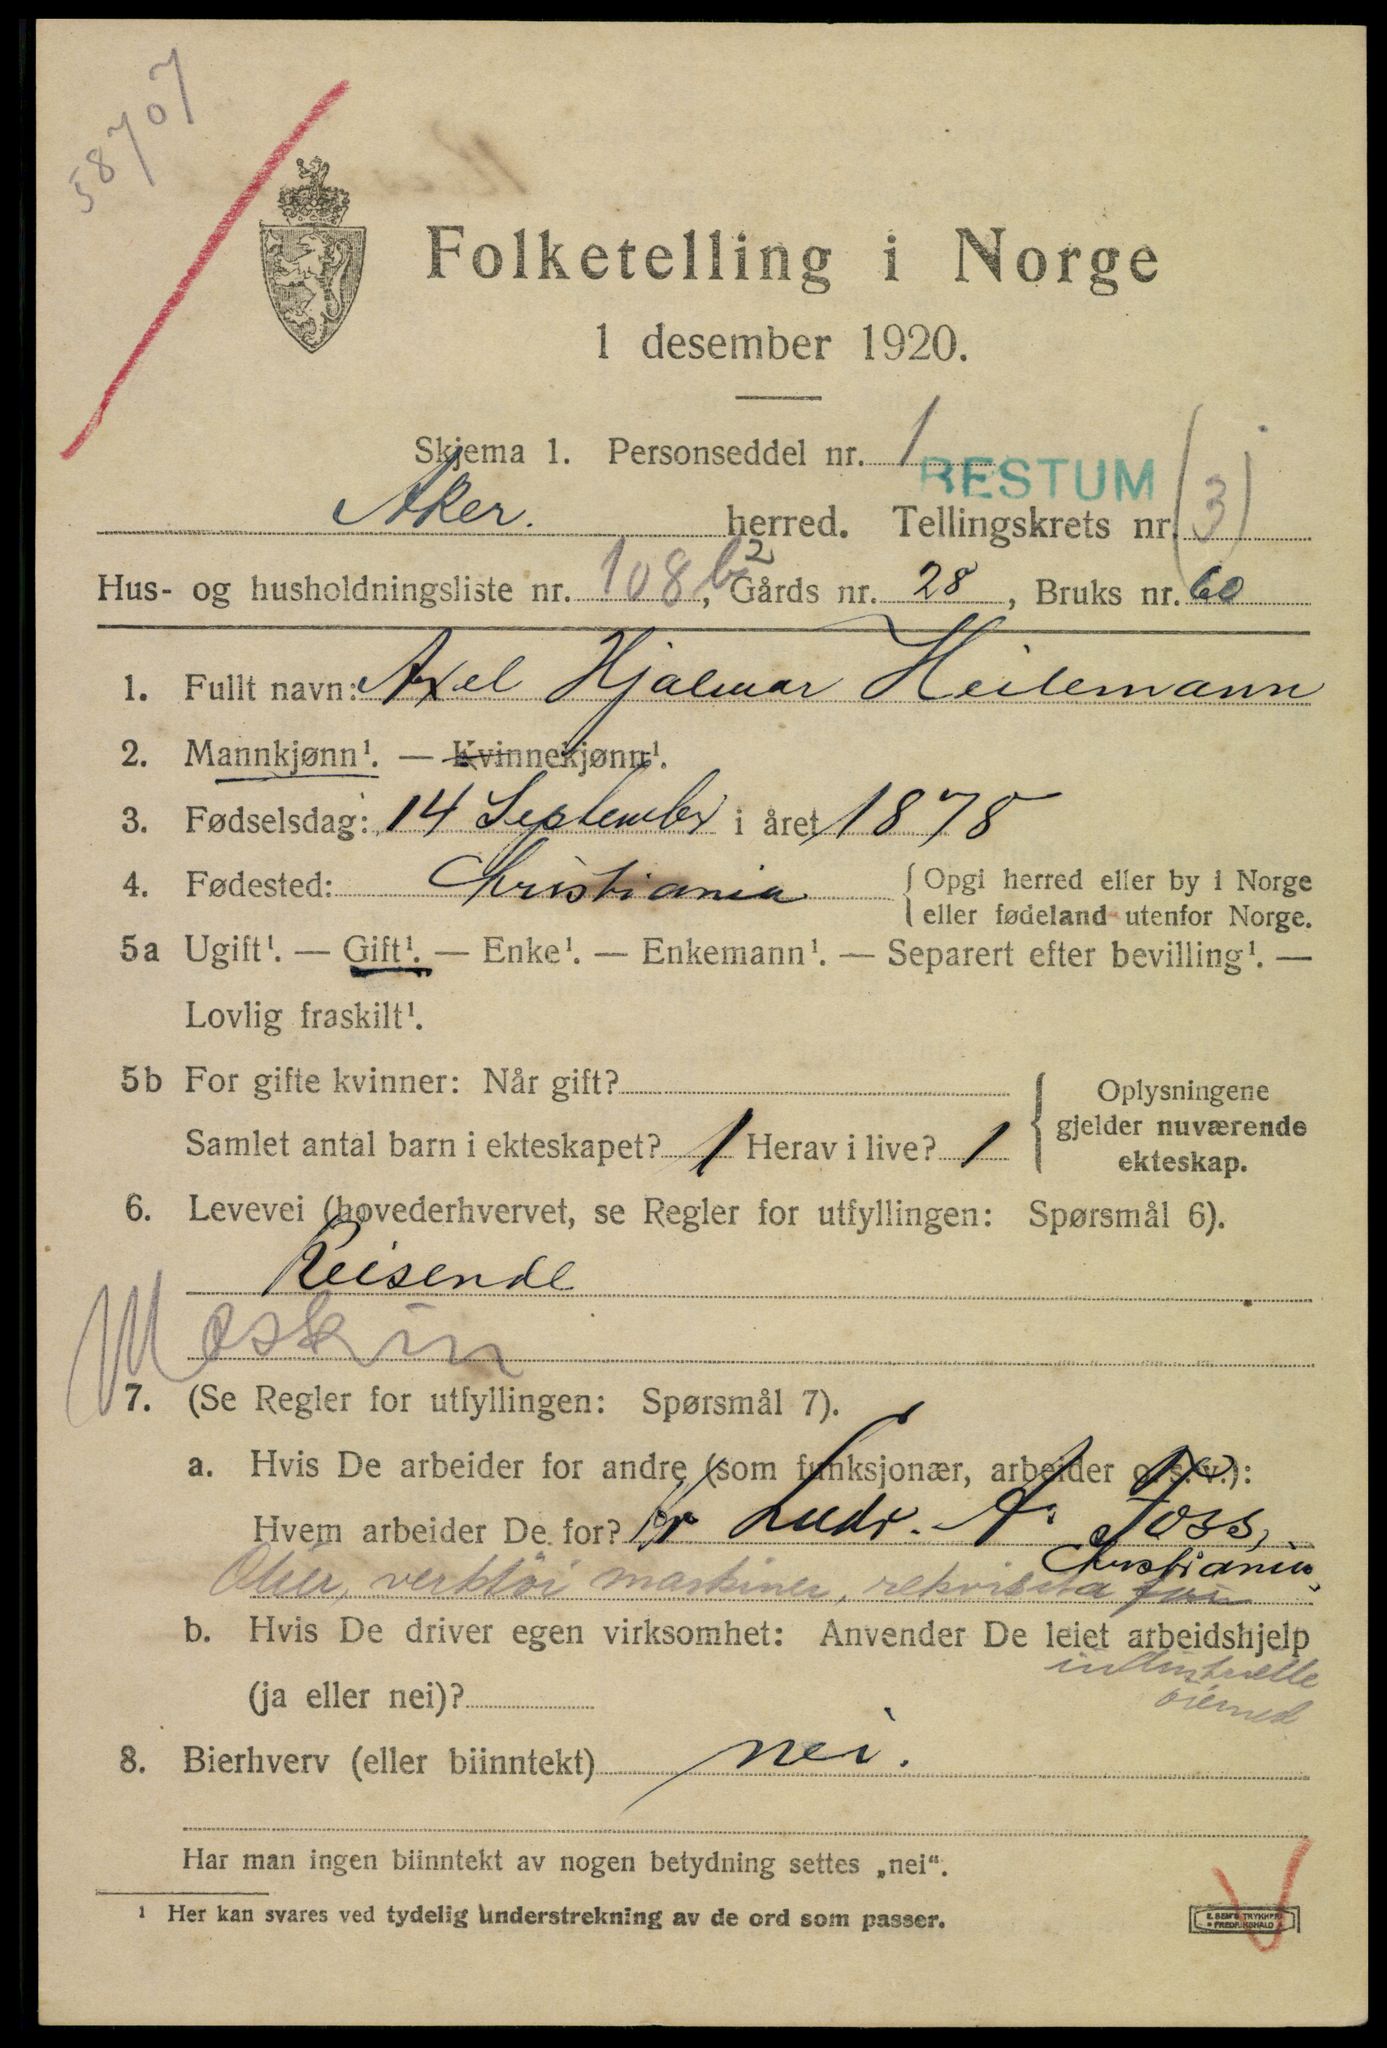 58707
Folketelling i Norge
1 desember 1920.
Skjema 1. Personseddel nr. 1
RESTUM
Aker. herred. Tellingskrets nr. (3)
Hus- og husholdningsliste nr. 108 b2, Gårds nr. 28, Bruks nr. 60
1. Fullt navn: Axel Hjalmar Heilemann
2. Mannkjønn¹. — Kvinnekjønn¹.
3. Fødselsdag: 14 September i året 1878
4. Fødested: Christiania { Opgi herred eller by i Norge
eller fødeland utenfor Norge.
5a Ugift¹. — Gift¹. — Enke¹. — Enkemann¹. — Separert efter bevilling¹. —
Lovlig fraskilt¹.
5b For gifte kvinner: Når gift?
Samlet antal barn i ekteskapet? 1 Herav i live? 1
{ Oplysningene
gjelder nuværende
ekteskap.
6. Levevei (hovederhvervet, se Regler for utfyllingen: Spørsmål 6).
Reisende
Maskin
7. (Se Regler for utfyllingen: Spørsmål 7).
a. Hvis De arbeider for andre (som funksjonær, arbeider o. s. v.):
Hvem arbeider De for? Hr Ludv. A. Joss,
Christiania.
verktöi maskiner, rekvisita for
b. Hvis De driver egen virksomhet: Anvender De leiet arbeidshjelp
industrielle
(ja eller nei)?
øiemed
8. Bierhverv (eller biinntekt) nei.
Har man ingen biinntekt av nogen betydning settes „nei“.
¹ Her kan svares ved tydelig understrekning av de ord som passer.